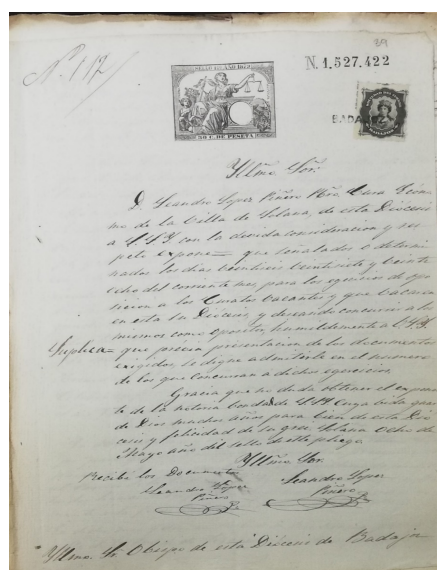 39
N. 112
SELLO 11º AÑO 1878
N. 1.527.422
50 C. DE PESETA
BADAJOZ
Yllmo Sor.
D. Leandro Lopez Piñero Pbro Cura Ecóno
mo de la Villa de Solana, de esta Diócesis
a V.S.Y. con la devida consideracion y res
peto expone= que señalados e determi
nados los dias veintiseis veintisiete y veinte
ocho del corriente mes, para los egercicios de opo
sicion a los Curatos vacantes y que vacaren
en esta la Diócesis, y deseando concurrir a los
mismos como Opositor, humildemente a V.S.Y.
Suplica= que prévia presentacion de los documentos
exigidos, se digne admitirle en el número
de los que concurran a dichos egercicios.
Gracia que no duda obtener el exponen
te de la notoria bondad de V.S.Y. Cuya vida guarde
de Dios muchos años para bien de esta Dió
cesis y felicidad de su grei. Solana Ocho de
Mayo año del sello de este pliego.
Yllmo Sor.
Recibí los Documentos
Leandro Lopez
Piñero
Leandro Lopez
Piñero
Yllmo. Sr. Obispo de esta Diócesis de Badajoz